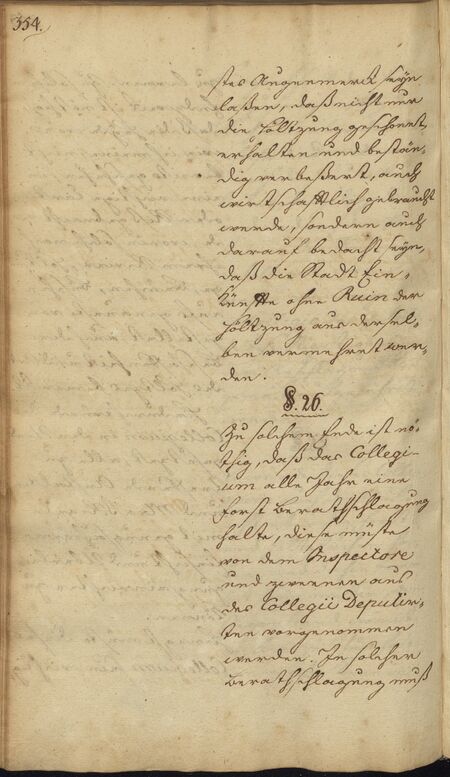 354.
stes Augenmerck seyn
laßen, daß nicht nur
die Höltzung geschonet,
erhalten und bestän-
dig verbeßert, auch
wirtschafftlich gebraucht
werde, sondern auch
darauf bedacht seyn,
daß die Stadt Ein-
künffte ohne Ruin der
Höltzung aus dersel-
ben vermehret wer-
den.
§. 26.
Zu solchem Ende ist nö-
thig, daß das Collegi-
um alle Jahr eine
Forst Berathschlagung
halte, diese müste
von dem Inspectore
und zweenen aus
des Collegii Deputir-
ten vorgenommen
werden. In solcher
Berathschlagung muß